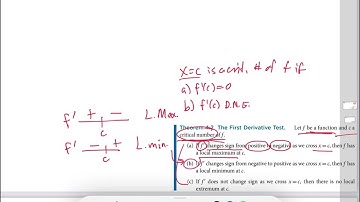 x=c is a crit. # of f if
a) f'(c)=0
b) f'(c) D.N.E.
f' + − L. Max
c
f' − + L. min.
c
The First Derivative Test. Let f be a function and c a
critical number of f.
(a) If f' changes sign from positive to negative as we cross x = c, then f has
a local maximum at c.
(b) If f' changes sign from negative to positive as we cross x = c, then f has
a local minimum at c.
(c) If f' does not change sign as we cross x = c, then there is no local
extremum at c.